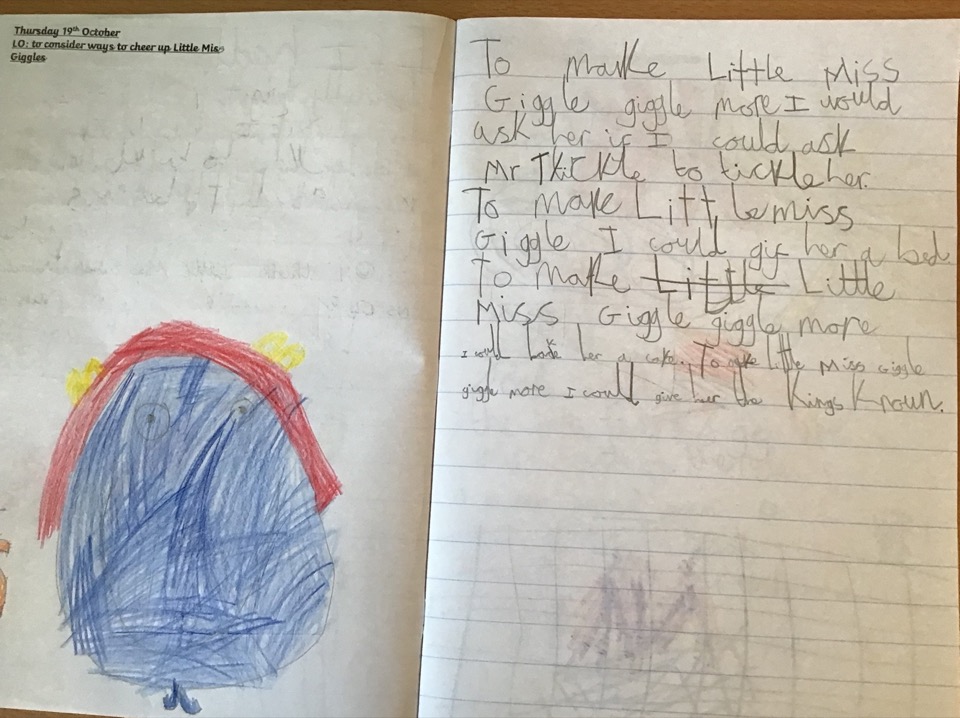 Thursday 19th October
LO: to consider ways to cheer up Little Miss
Giggles
To make Little Miss
Giggle giggle more I would
ask her if I could ask
Mr Tkickle to tickle her.
To make Little miss
Giggle I could gif her a bed
To make Little Little
Miss Giggle giggle more
I could bake her a cake. To make little Miss giggle
giggle more I could give her the Kings Kroun.